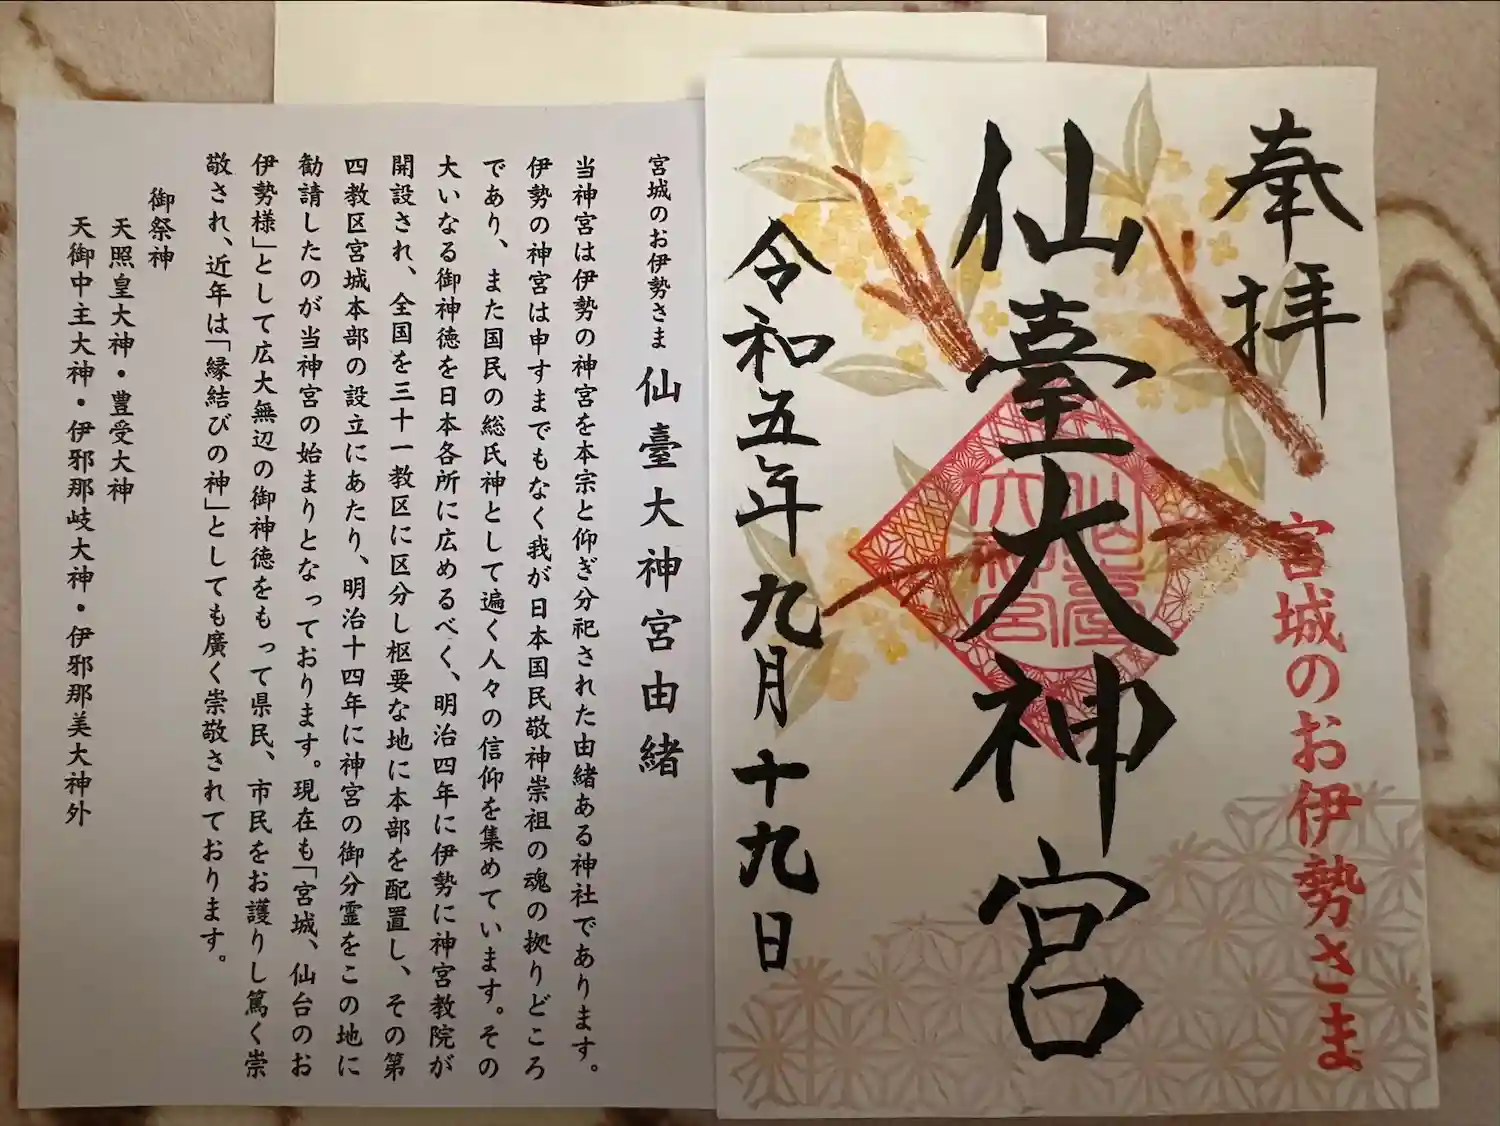 奉拝
宮城のお伊勢さま
仙臺大神宮
仙臺大神宮
令和五年九月十九日
宮城のお伊勢さま 仙臺大神宮由緒
当神宮は伊勢の神宮を本宗と仰ぎ分祀された由緒ある神社であります。
伊勢の神宮は申すまでもなく我が日本国民敬神崇祖の魂の拠りどころ
であり、また国民の総氏神として遍く人々の信仰を集めています。その
大いなる御神徳を日本各所に広めるべく、明治四年に伊勢に神宮教院が
開設され、全国を三十一教区に区分し枢要な地に本部を配置し、その第
四教区宮城本部の設立にあたり、明治十四年に神宮の御分霊をこの地に
勧請したのが当神宮の始まりとなっております。現在も「宮城、仙台のお
伊勢様」として広大無辺の御神徳をもって県民、市民をお護りし篤く崇
敬され、近年は「縁結びの神」としても廣く崇敬されております。
御祭神
天照皇大神・豊受大神
天御中主大神・伊邪那岐大神・伊邪那美大神外